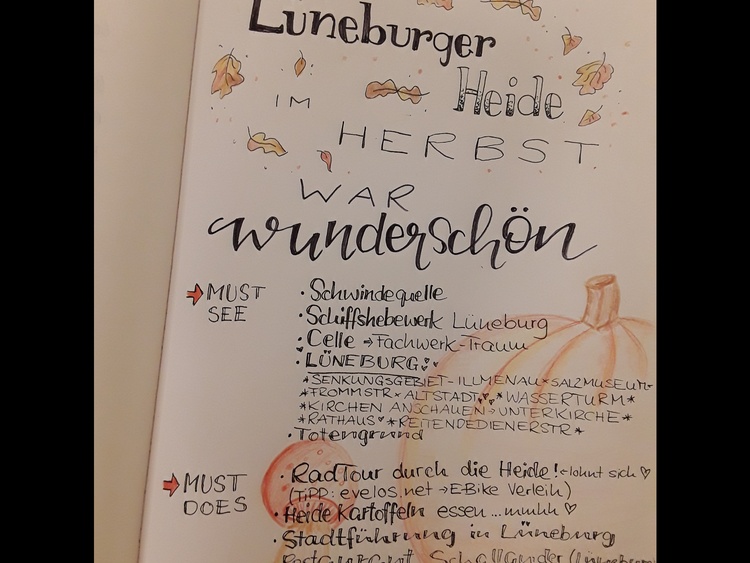 Lüneburger
Heide
IM
HERBST
WAR
wunderschön
MUST SEE
· Schwindequelle
· Schiffshebewerk Lüneburg
· Celle → Fachwerk-Traum
· LÜNEBURG
*SENKUNGSGEBIET-ILLMENAU*SALZMUSEUM*
*FROMMSTR*ALTSTADT*WASSERTURM*
*KIRCHEN ANSCHAUEN→UNTERKIRCHE*
*RATHAUS*REITENDEDIENERSTR*
· Totengrund
MUST DOES
· RadTour durch die Heide! ←lohnt sich ♡
(TiPP: evelos.net → E-Bike Verleih)
· Heide Kartoffeln essen ... mmhh ♡
· Stadtführung in Lüneburg
Restaurant Schallander (Lüneburg